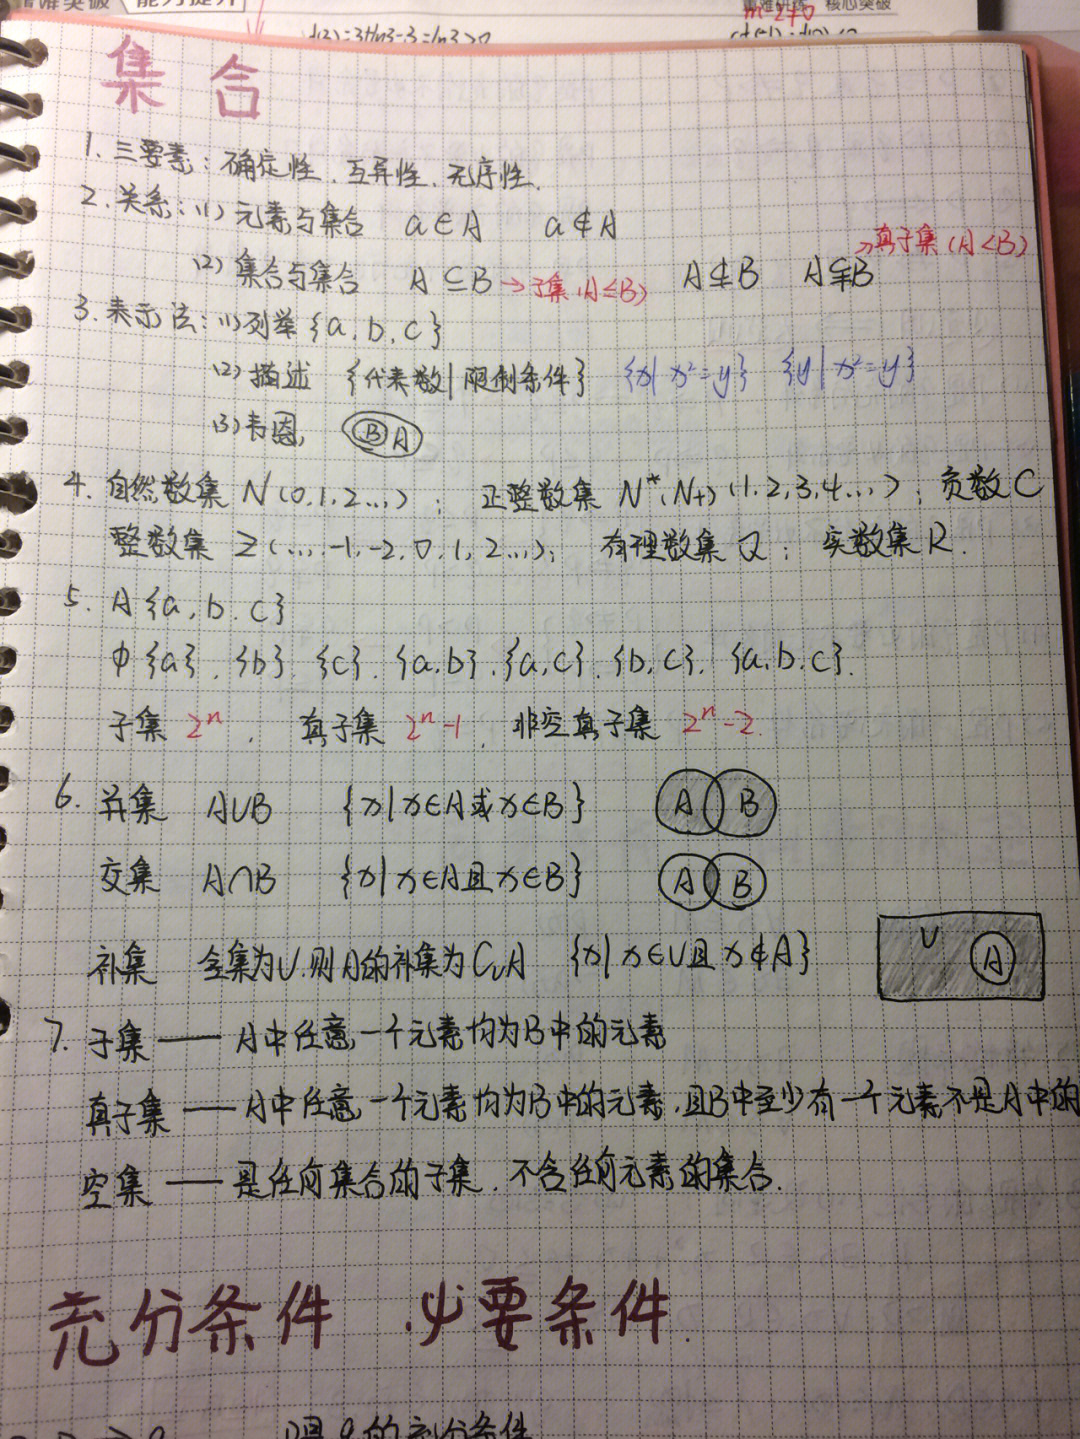 重难突破 能力提升
核心突破
m-2≠0
f(2)=3+ln3-3=ln3>0
集合
1. 三要素：确定性、互异性、无序性.
2. 关系：(1) 元素与集合 a∈A a∉A
(2) 集合与集合 A⊆B →子集(A≤B) A⊈B A⫋B →真子集(A<B)
3. 表示法：(1)列举 {a,b,c}
(2)描述 {代表数|限制条件} {x|x²=y} {y|x²=y}
(3)韦恩 B A
4. 自然数集 N(0,1,2...)； 正整数集 N*(N+)(1,2,3,4...)；负数C
整数集 Z(...,-1,-2,0,1,2...)； 有理数集Q； 实数集R.
5. A{a,b,c}
Φ{a}.{b}.{c}.{a,b}.{a,c}.{b,c}.{a,b,c}.
子集 2ⁿ. 真子集 2ⁿ-1. 非空真子集 2ⁿ-2.
6. 并集 A∪B {x|x∈A或x∈B} A B
交集 A∩B {x|x∈A且x∈B} A B
补集 全集为U.则A的补集为CᵤA {x|x∈U且x∉A} U A
7. 子集——A中任意一个元素均为B中的元素
真子集——A中任意一个元素均为B中的元素.且B中至少有一个元素不是A中的
空集——是任何集合的子集.不含任何元素的集合.
充分条件 必要条件.
的充分条件